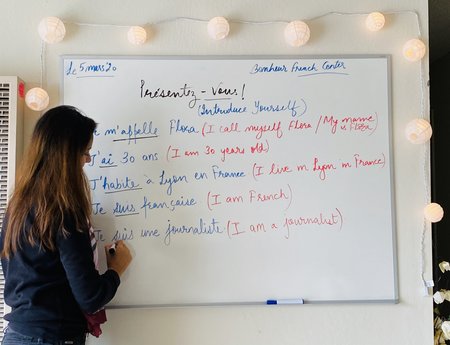 Le 5 mars '20
Bonheur French Center
Présentez-vous!
(Introduce Yourself)
Je m'appelle Flora (I call myself Flora / My name is Flora)
J'ai 30 ans (I am 30 years old)
J'habite à Lyon en France (I live in Lyon in France)
Je suis française (I am French)
Je suis une journaliste (I am a journalist)